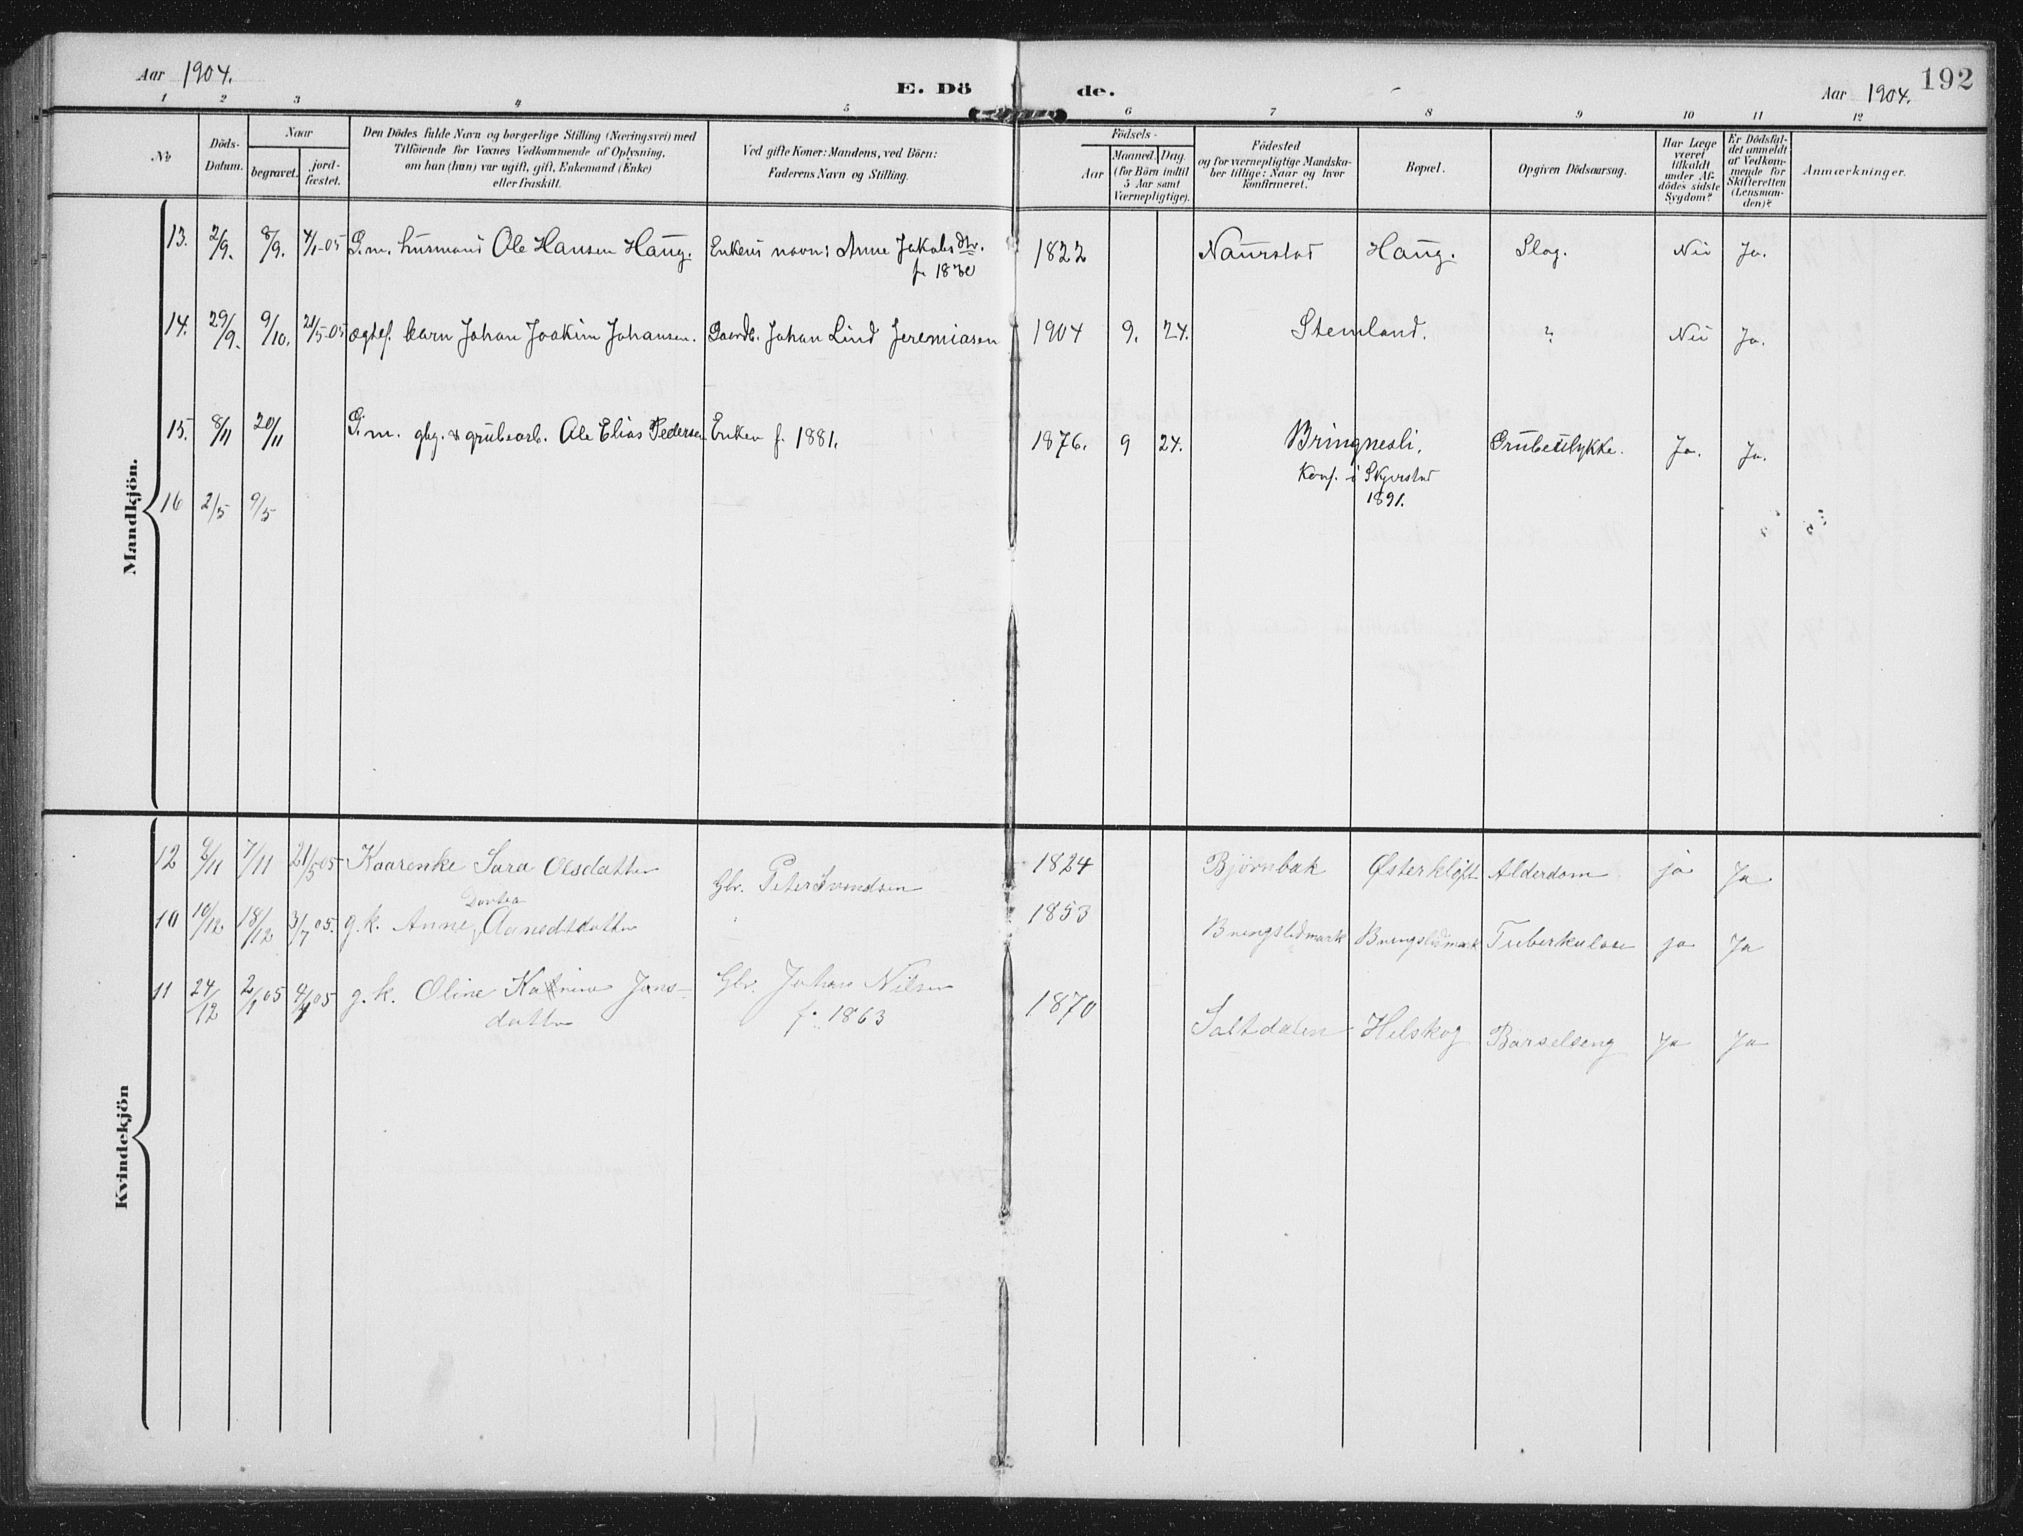 Aar 1904.
E. Dö de.
Aar 1904.
192
1 2 3 4 5 6 7 8 9 10 11 12
No
Döds-Datum.
Naar
begravet.
jordfæstet.
Den Dödes fulde Navn og borgerlige Stilling (Næringsvei) med
Tilföiende for Voxnes Vedkommende af Oplysning,
om han (hun) var ugift, gift, Enkemand (Enke)
eller fraskilt.
Ved gifte Koner: Mandens, ved Börn:
Faderens Navn og Stilling.
Födsels-
Aar
Maaned. Dag.
(for Börn indtil
5 Aar samt
Værnepligtige).
Födested
og for værnepligtige Mandska-
ber tillige: Naar og hvor
konfirmeret.
Bopæl.
Opgiven Dödsaarsag.
Har Læge
været
tilkaldt
under Af-
dödes sidste
Sygdom?
Er Dödsfal-
det anmeldt
af Vedkom-
mende for
Skifteretten
(Lensman-
den)?
Anmærkninger.
Mandkjön.
13. 2/9. 8/9. 4/1-05 G.m. husmand Ole Hansen Haug. Enkens navn: Anne Jakobsdtr. 1822 Naurstad Haug. Slag. Nei Ja.
14. 29/9. 9/10. 21/5-05 ægtef. barn Johan Joakim Johansen. Gaardb. Johan Lind Jeremiasen 1904 9. 24. Stemland. ? Nei Ja.
15. 8/11 20/11 G.m. gbg. & grubearb. Ole Elias Pedersen Enken f. 1881. 1876. 9 24. Bringnesli. Grubeulykke. Ja. Ja.
Konf. i Skjerstad
1891.
16 2/5 9/5
Kvindekjön
12 2/11 7/11 21/5 05 Kaarenke Sara Olsdatter Gbr. Peter Svendsen 1824 Bjørnbak Østerkløft Alderdom ja Ja
Dortea
10 10/12 18/12 3/7 05. g.k. Anne Aanedsdatter 1853 Bringslidmark Bringslidmark Tuberkulose ja Ja
11 24/12 2/1 05 g.k. Oline Katrine Jons- Gbr. Johan Nilsen 1870 Saltdalen Helskog Barselseng Ja Ja
datter f. 1863